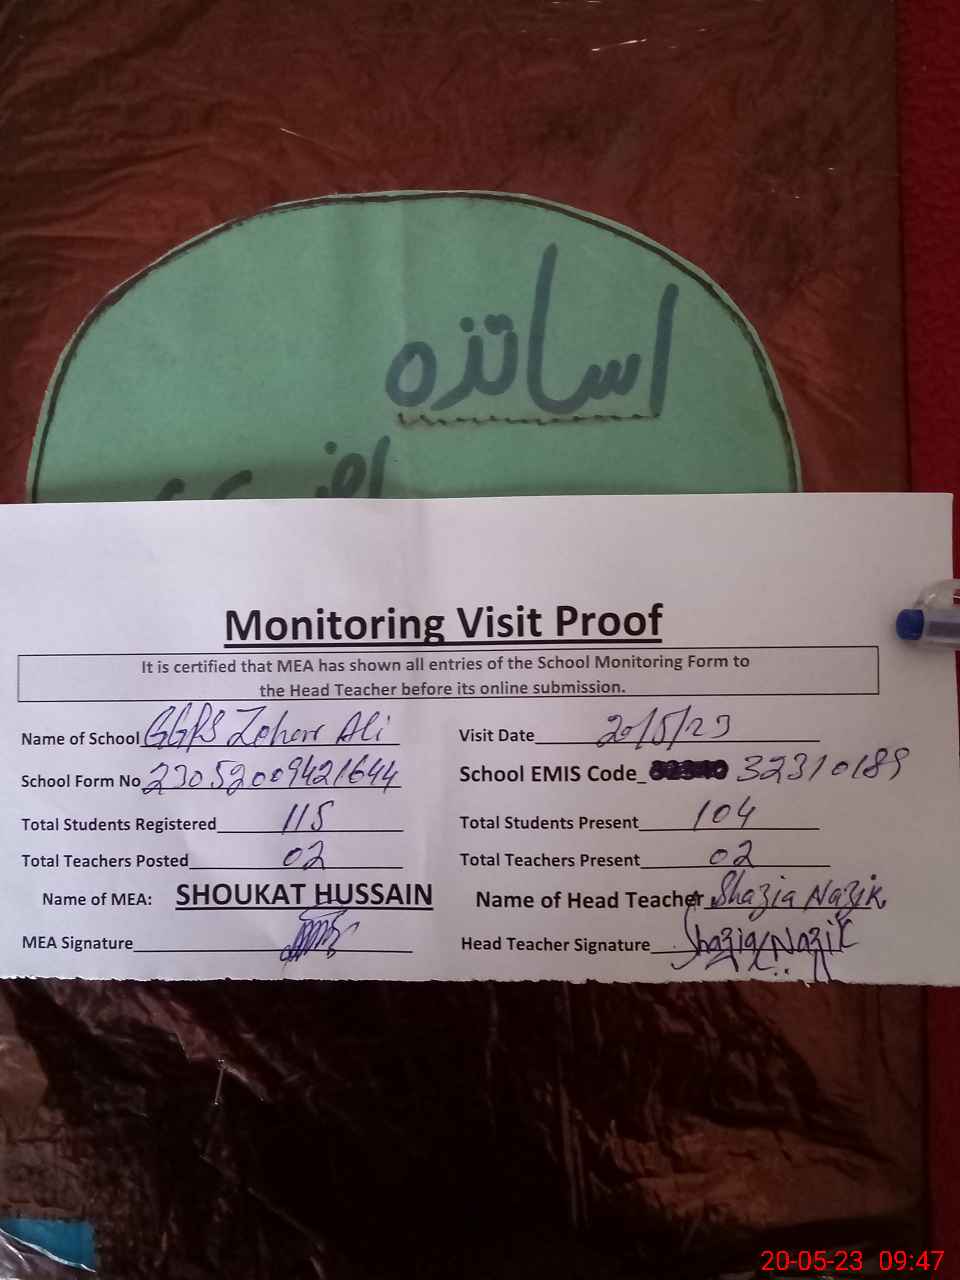 اساتذہ
Monitoring Visit Proof
It is certified that MEA has shown all entries of the School Monitoring Form to
the Head Teacher before its online submission.
Name of School GGPS Zohor Ali Visit Date 20/5/23
School Form No 23052009421644 School EMIS Code 32310189
Total Students Registered 115 Total Students Present 104
Total Teachers Posted 02 Total Teachers Present 02
Name of MEA: SHOUKAT HUSSAIN Name of Head Teacher Shazia Nazik
MEA Signature Head Teacher Signature Shazia Nazik
20-05-23 09:47